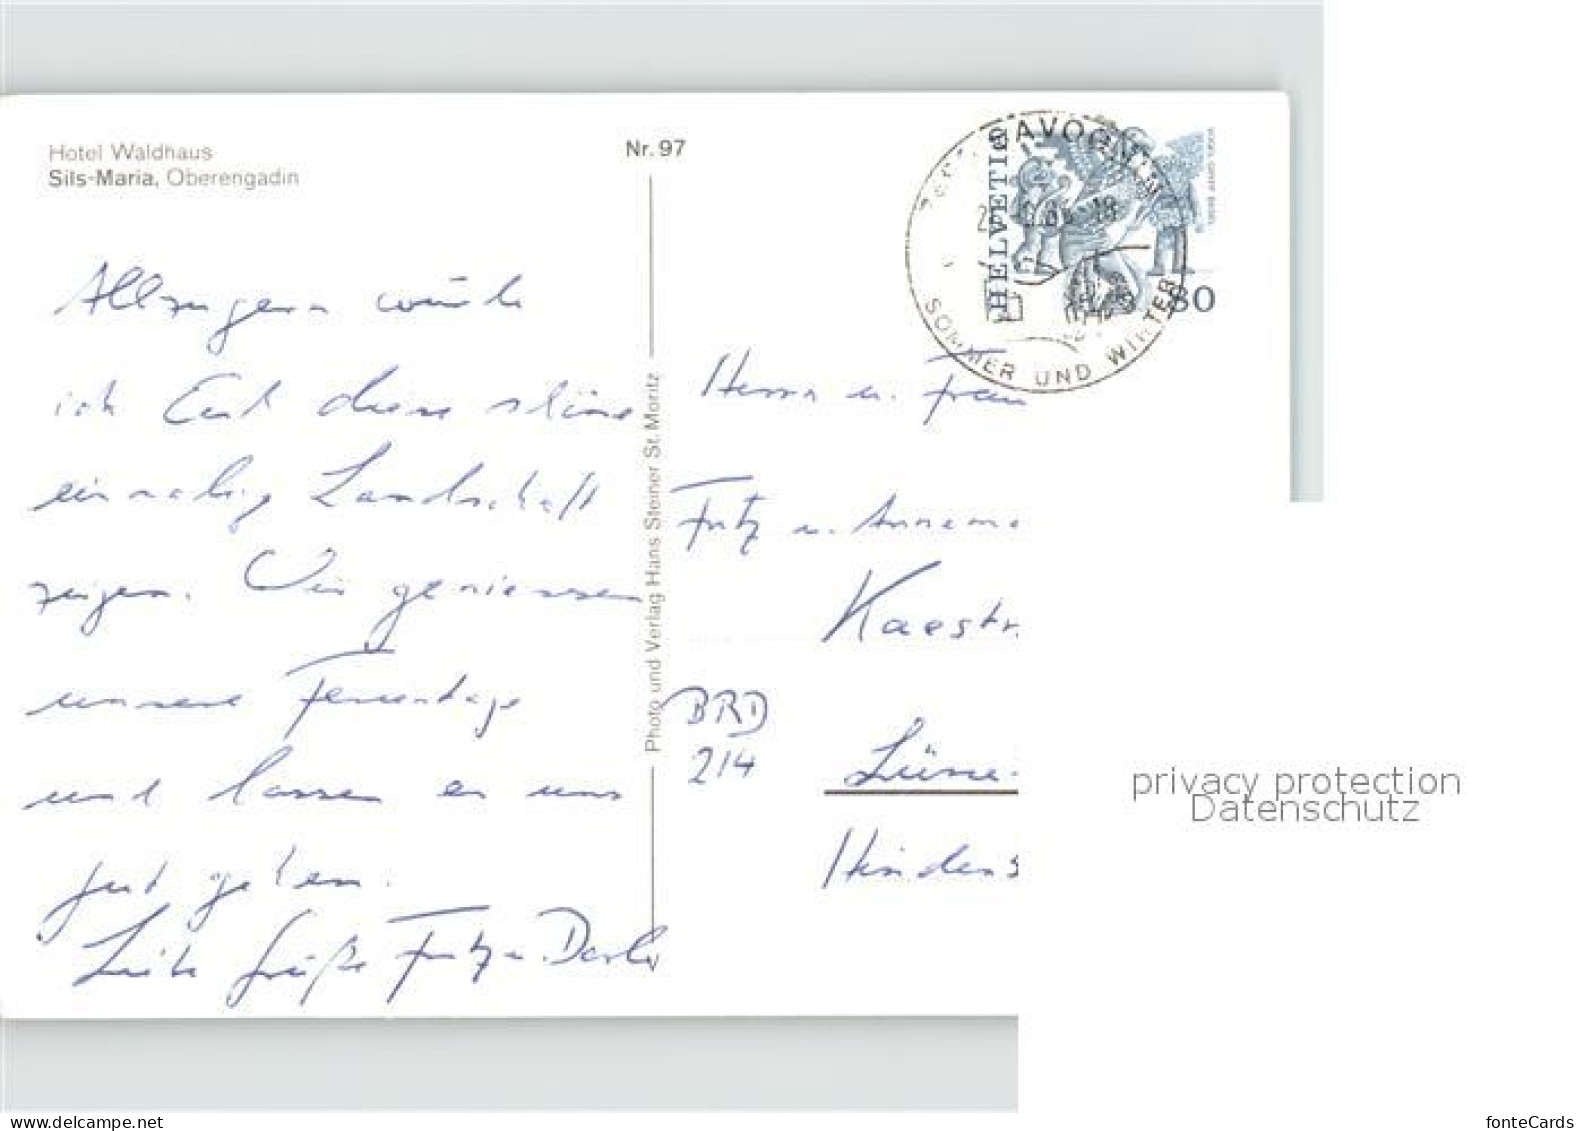 Hotel Waldhaus
Sils-Maria, Oberengadin
Nr. 97
SAVOGNIN
HELVETIA
80
SOMMER UND WINTER
Allzugern würde
ich Euch diese schöne
einmalige Landschaft
zeigen. Wir geniessen
unsere Ferientage
und lassen es uns
gut gehen.
Liebe Grüße Fritz u.
Photo und Verlag Hans Steiner St. Moritz
Herrn u. Frau
Fritz u. Annema
Kaestn
BRD
214
Lüne
Hinden
privacy protection
Datenschutz
the-a-shop.eu
fonteCards